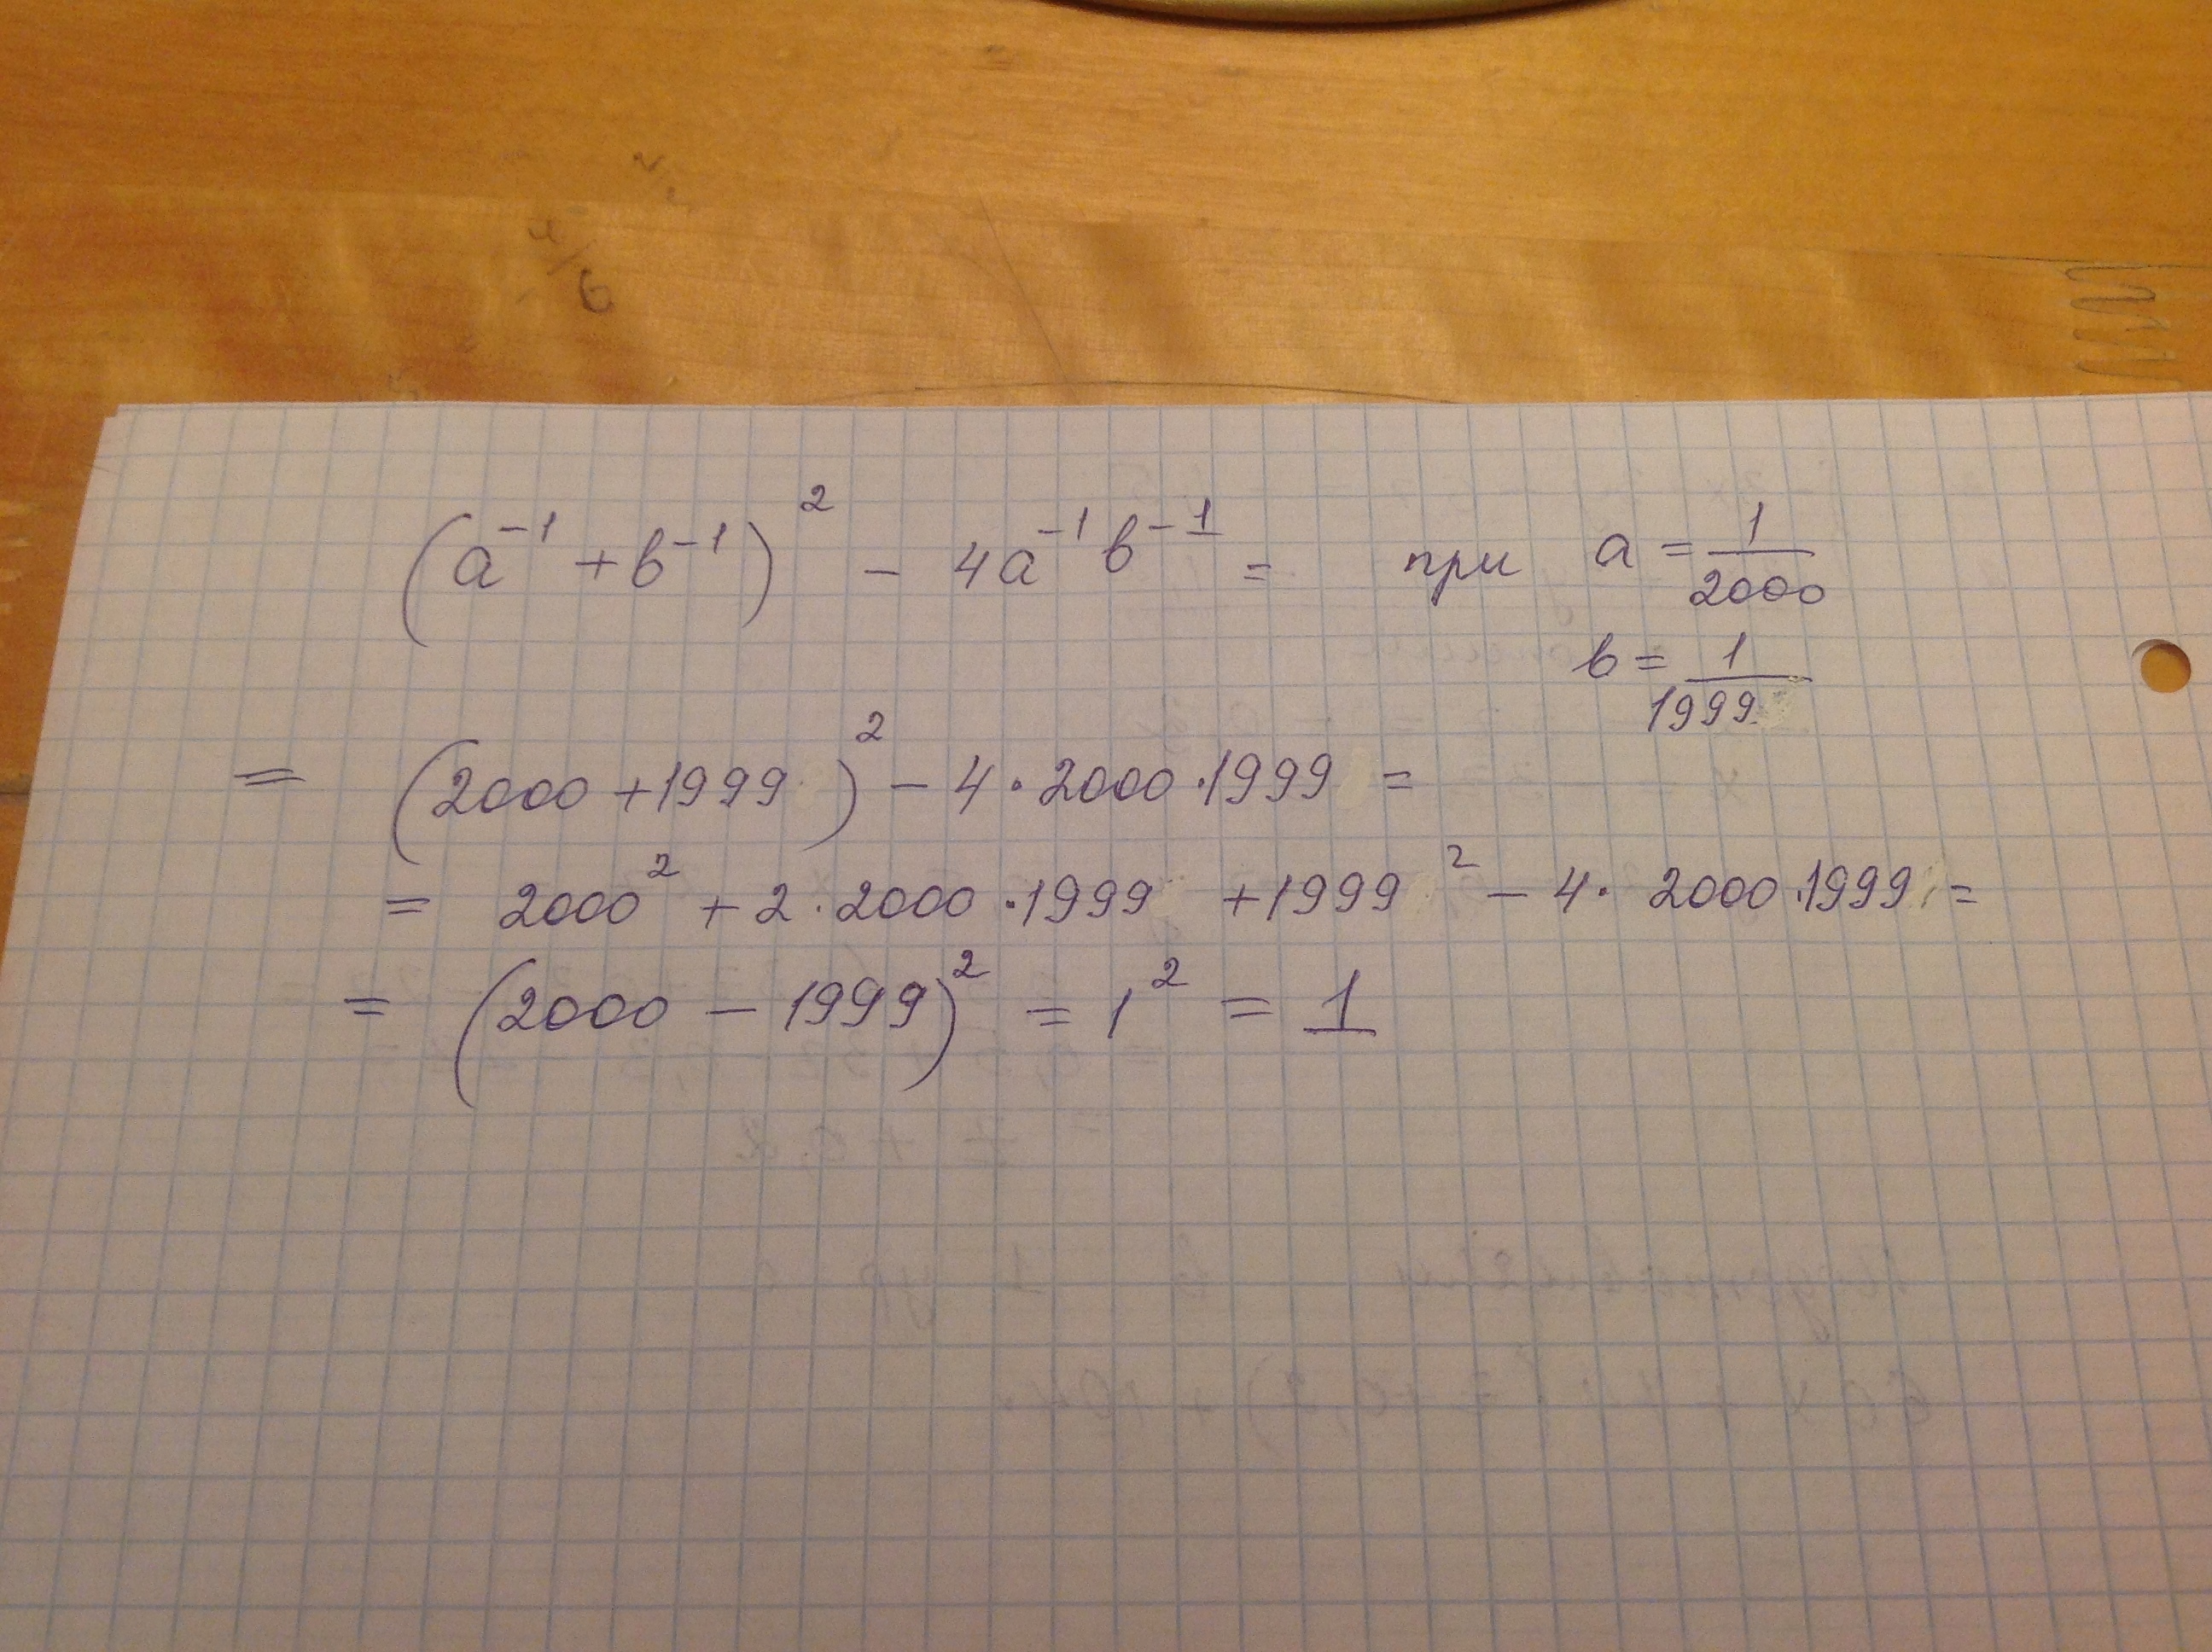 4/6
(a⁻¹ + b⁻¹)² − 4a⁻¹ b⁻¹ = при a = 1/2000
b = 1/1999
= (2000 + 1999)² − 4 · 2000 · 1999 =
= 2000² + 2 · 2000 · 1999 + 1999² − 4 · 2000 · 1999 =
= (2000 − 1999)² = 1² = 1